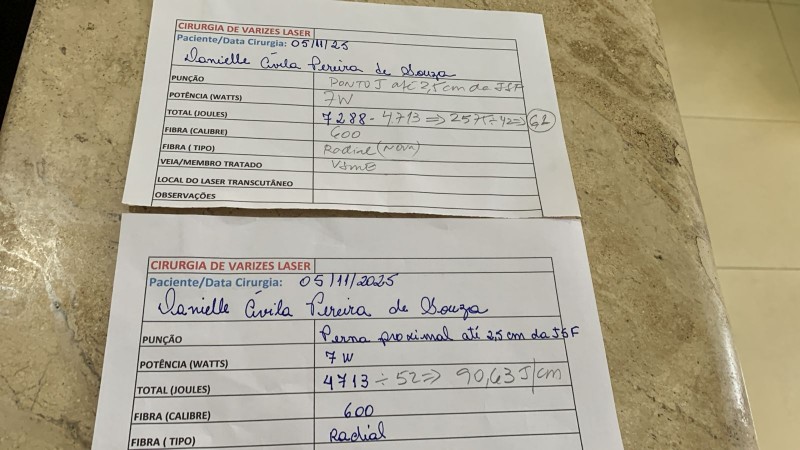 CIRURGIA DE VARIZES LASER
Paciente/Data Cirurgia: 05/11/25
Danielle Ávila Pereira de Souza
PUNÇÃO PONTO J até 2,5cm da JSF
POTÊNCIA (WATTS) 7W
TOTAL (JOULES) 7288 - 4713 => 2575 ÷ 42 => 61
FIBRA (CALIBRE) 600
FIBRA ( TIPO) Radial (NOVA)
VEIA/MEMBRO TRATADO VSME
LOCAL DO LASER TRANSCUTÂNEO
OBSERVAÇÕES
CIRURGIA DE VARIZES LASER
Paciente/Data Cirurgia: 05/11/2025
Danielle Ávila Pereira de Souza
PUNÇÃO Perna proximal até 2,5 cm da JSF
POTÊNCIA (WATTS) 7 W
TOTAL (JOULES) 4713 ÷ 52 => 90,63 J/cm
FIBRA (CALIBRE) 600
FIBRA ( TIPO) Radial